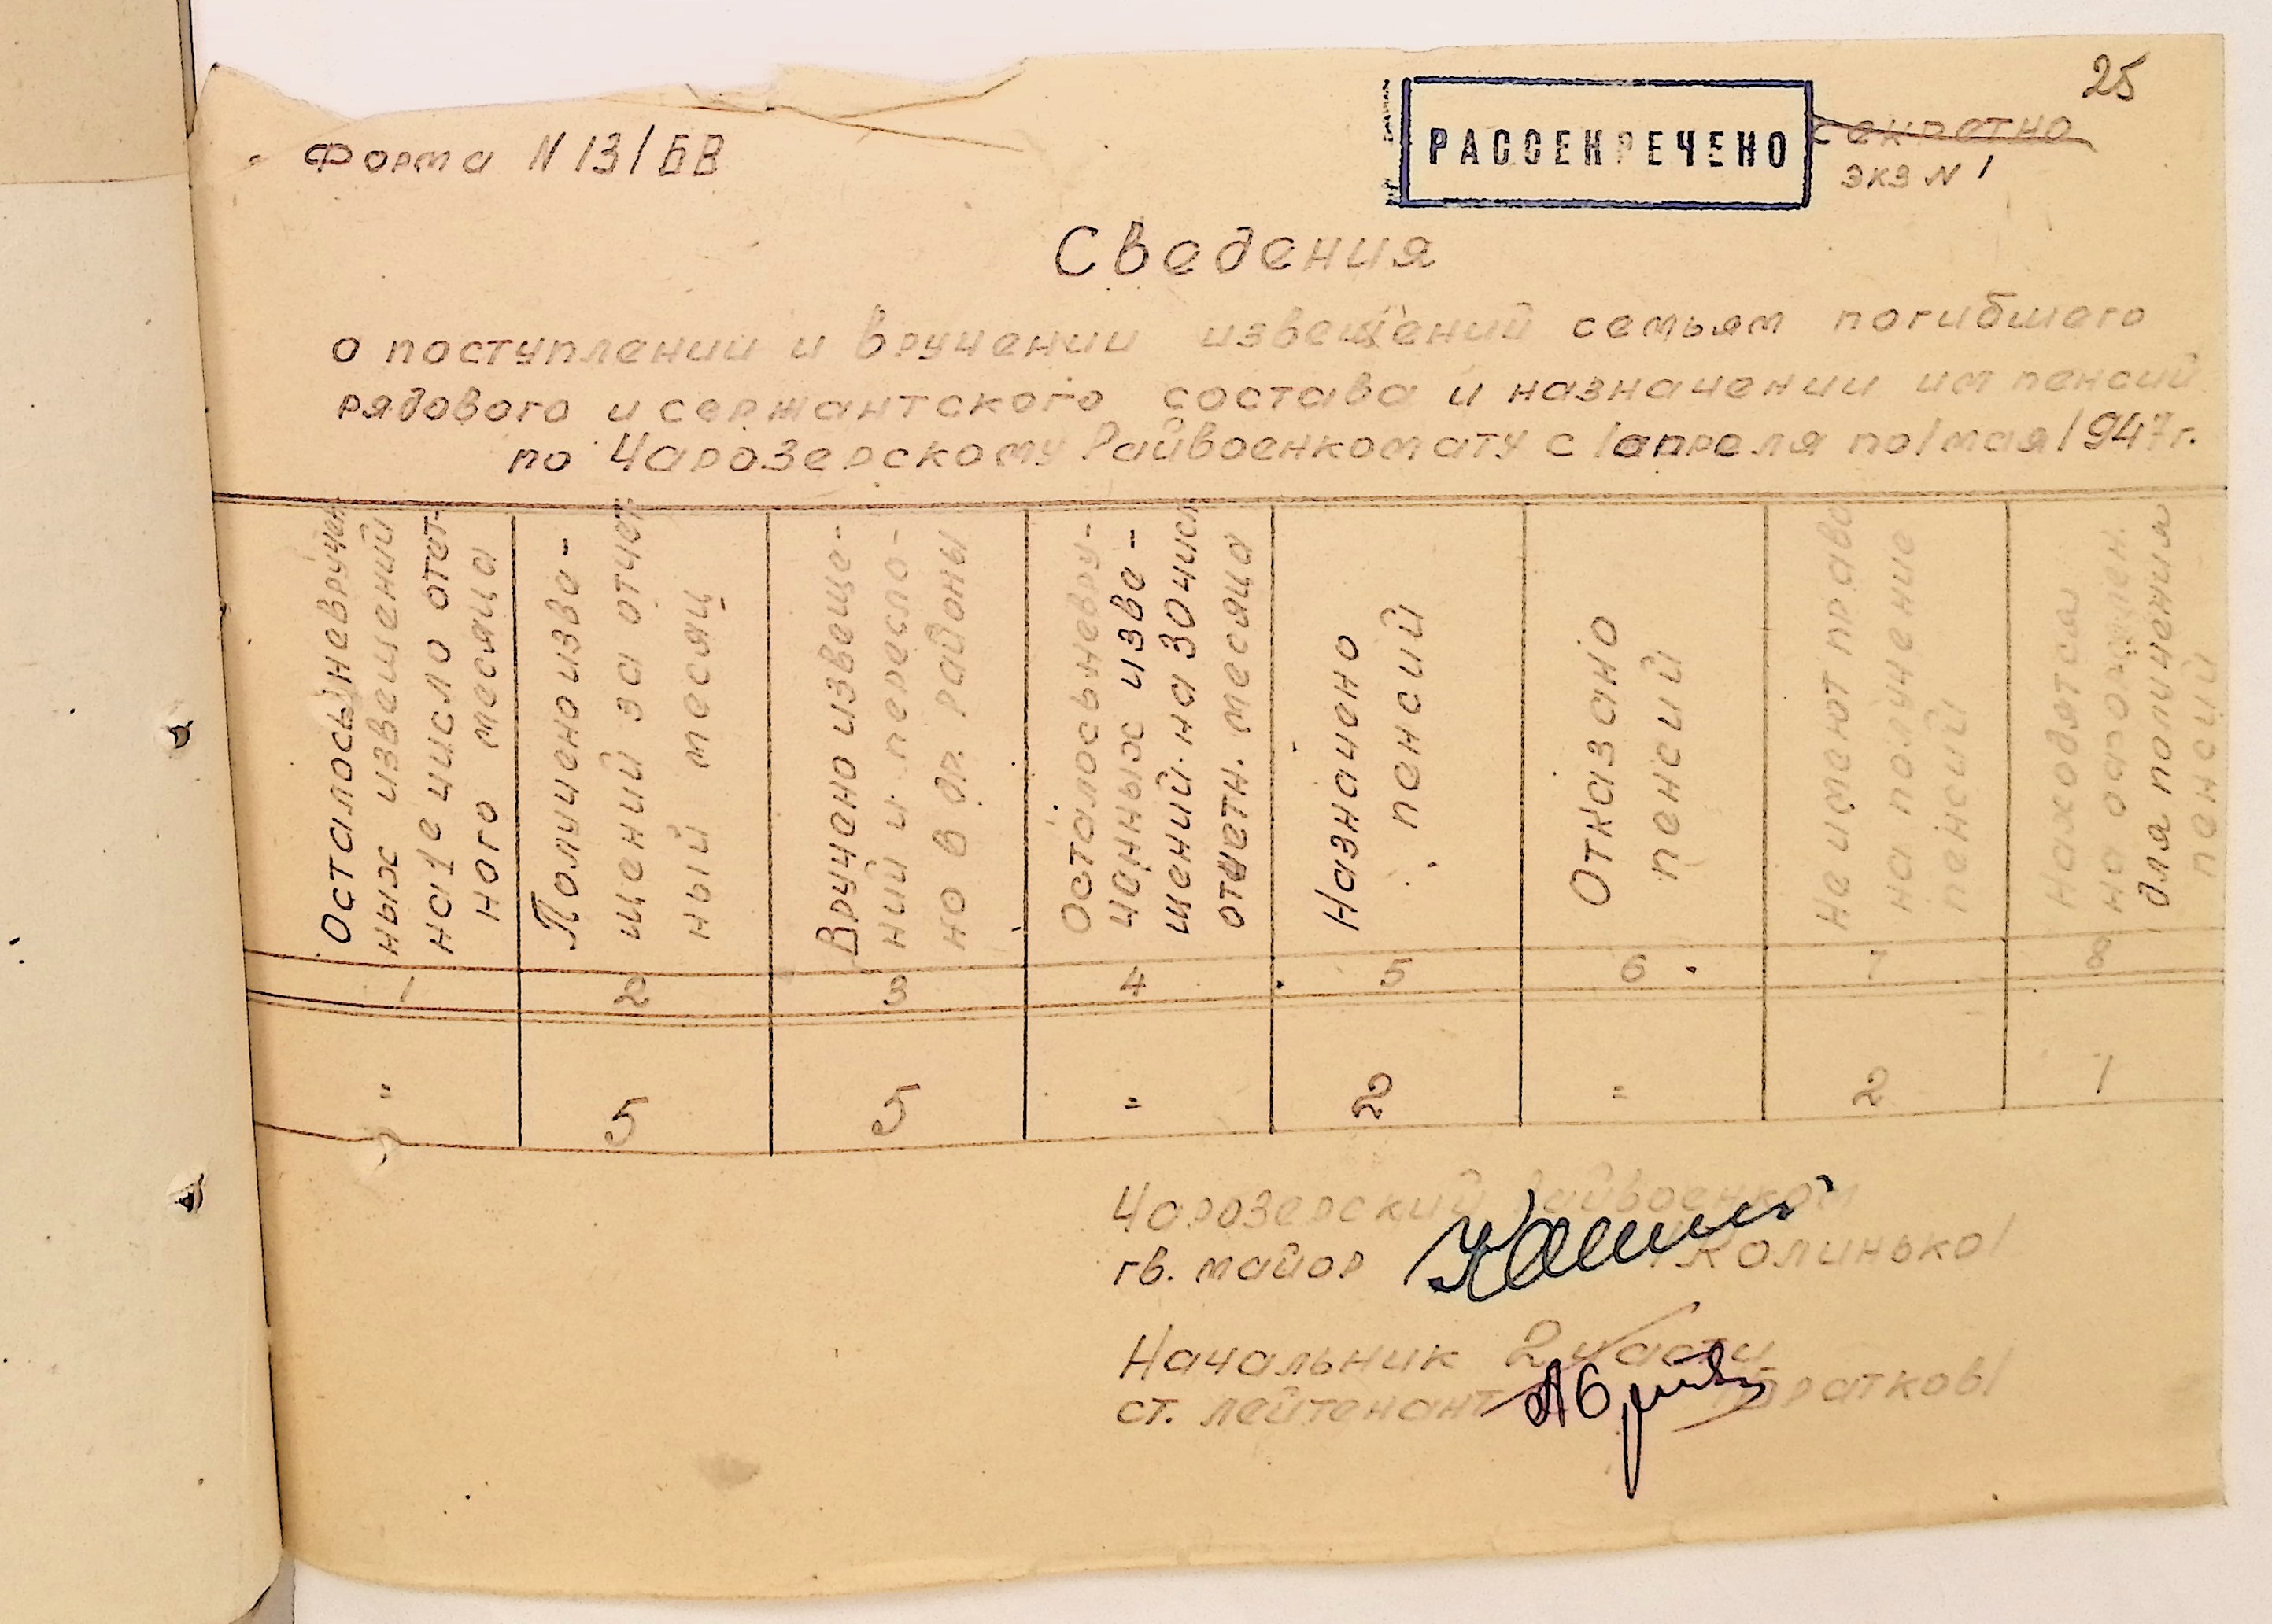 25
Форма N 13/БВ
РАССЕКРЕЧЕНО
Секретно
экз N 1
Сведения
о поступлении и вручении извещений семьям погибшего
рядового и сержантского состава и назначении им пенсий
по Чарозерскому Райвоенкомату с 1 апреля по 1 мая 1947 г.
Осталось невручен
ных извещений
на 1е число отчет-
ного месяца
Получено изве-
щений за отчет
ный месяц
Вручено извеще-
ний и пересла-
но в др. районы
Осталось невру-
ченных изве-
щений на 30 числ
отчетн. месяца
Назначено
пенсий
Отказано
пенсий
Не имеют права
на получение
пенсий
Находятся
на оформлен.
для получения
пенсий
1 2 3 4 5 6 7 8
" 5 5 " 2 " 2 1
Чарозерский Райвоенком
гв. майор /Калинько/
Начальник 2 части
ст. лейтенант /Братков/